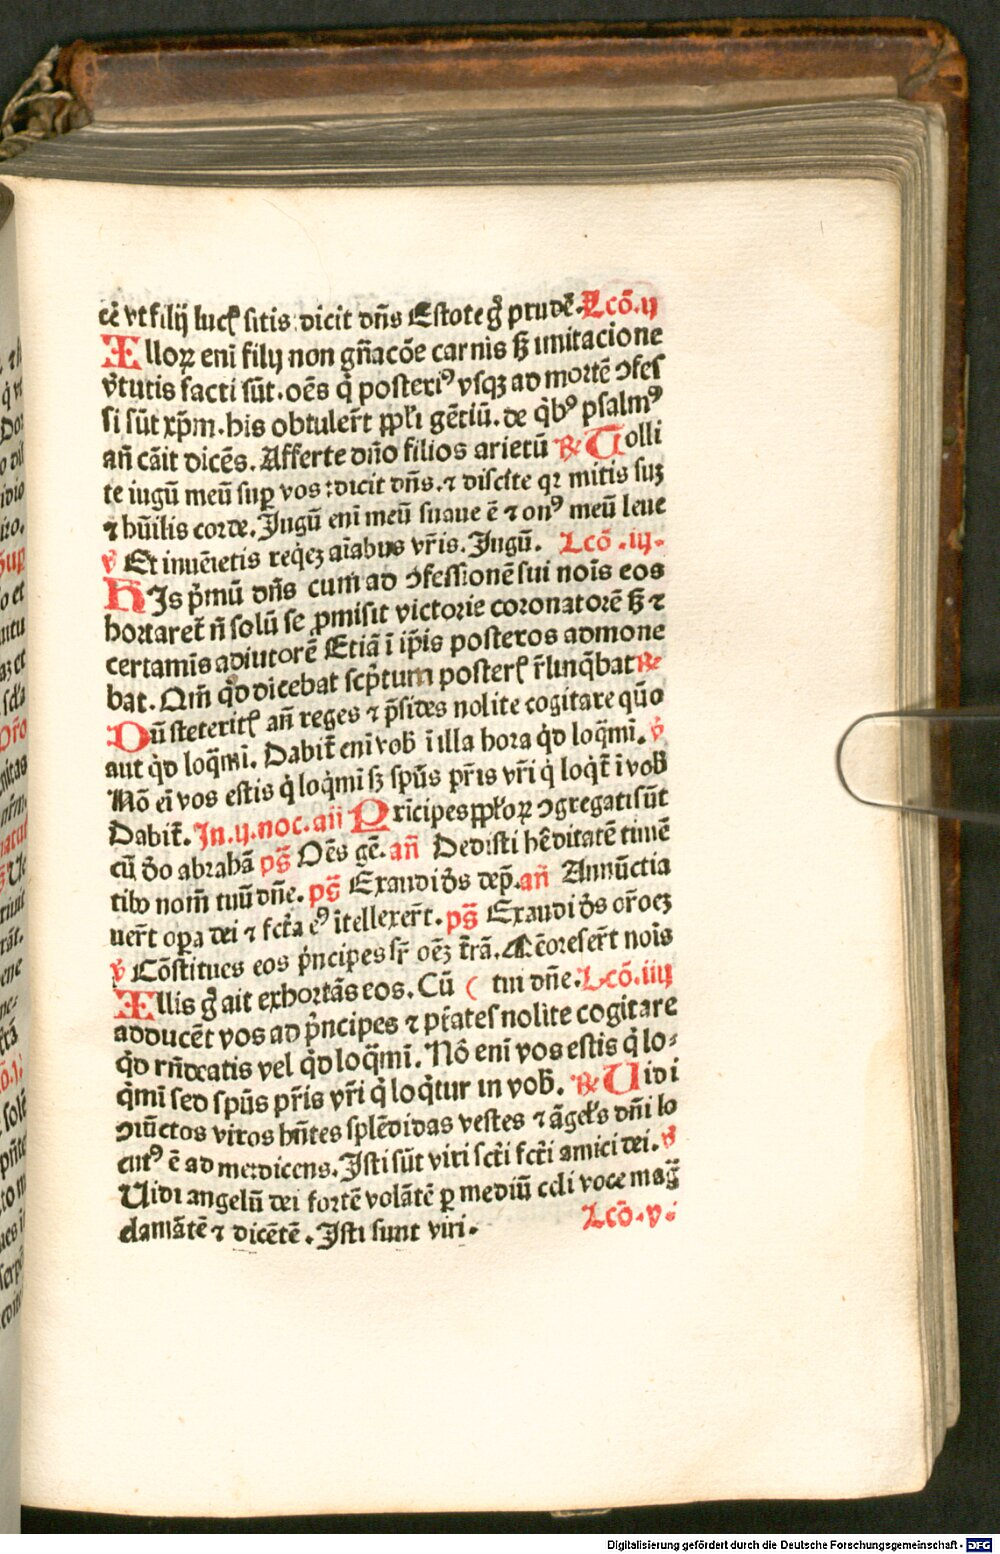 cē vt filij lucꝭ sitis dicit dn̄s Estote g̊ prudē. Lcō.ij
Illoꝝ eni filij non gn̄acōe carnis sꝫ imitacione
v̓tutis facti sūt. oēs q̇ posteriꝰ vsqꝫ ad mortē ↄfes
si sūt xp̄m. his obtuler̄t ppl̓i gētiū. de q̇bꝰ psalmꝰ
an̄ cāit dicēs. Afferte dn̄o filios arietū ꝶ Tolli
te iugū meū suꝑ vos: dicit dn̄s. ⁊ discite qꝛ mitis suꝫ
⁊ hūilis corde. Jugū eni meū suaue ē ⁊ onꝰ meū leue
℣ Et inuēietis reqēꝫ aīabus vr̄is. Jugū. Lcō .iij.
HJs p̓mū dn̄s cum ad ↄfessionē sui noīs eos
hortaret̄ n̄ solū se ꝓmisit victorie coronatorē sꝫ ⁊
certamīs adiutorē Etiā ī ip̄is posteros admone
bat. Qm̄ qd̓ dicebat scp̓tum posterꝭ r̄linq̄bat ꝶ
Dū steteritꝭ an̄ reges ⁊ p̄sides nolite cogitare quō
aut qd̓ loq̄mi. Dabit̄ eni vob̄ ī illa hora qd̓ loq̄mi. ℣
Nō ei vos estis q̇ loq̄mi sꝫ spūs pr̄is vr̄i q̇ loqt̄ ī vob̄
Dabit̄. Jn.ij.noc.an̄ Prīcipes ppl̓oꝝ ↄgregati sūt
cū d̓o abrahā ps̄ Oēs gē. an̄ Dedisti hēditatē timē
tibꝰ nom̄ tuū dn̄e. ps̄ Exaudi d̓s dep̄. an̄ Annūctia
uer̄t oꝑa dei ⁊ fct̄a eꝰ ītellexer̄t. ps̄ Exaudi d̓s or̄oeꝫ
℣ Cōstitues eos p̓ncipes sr̄ oēꝫ t̄rā. Mēores er̄t nōis
Illis g̊ ait exhortās eos. Cū ( tui dn̄e. Lcō.iiij
adducēt vos ad p̓ncipes ⁊ pt̄ates nolite cogitare
qd̓ rn̄deatis vel qd̓ loq̄mi. Nō eni vos estis q̇ lo⸗
q̄mi sed spūs pr̄is vr̄i q̇ loq̄tur in vob̄. ꝶ Uidi
ↄiūctos viros hn̄tes splēdidas vestes ⁊ āgel̓s dn̄i lo
cutꝰ ē ad me: dicens. Jsti sūt viri sct̄i fct̄i amici dei. ℣
Uidi angelū dei fortē volātē ꝑ mediū celi voce maḡ
clamātē ⁊ dicētē. Jsti sunt viri. Lcō.v.
Digitalisierung gefördert durch die Deutsche Forschungsgemeinschaft - DFG